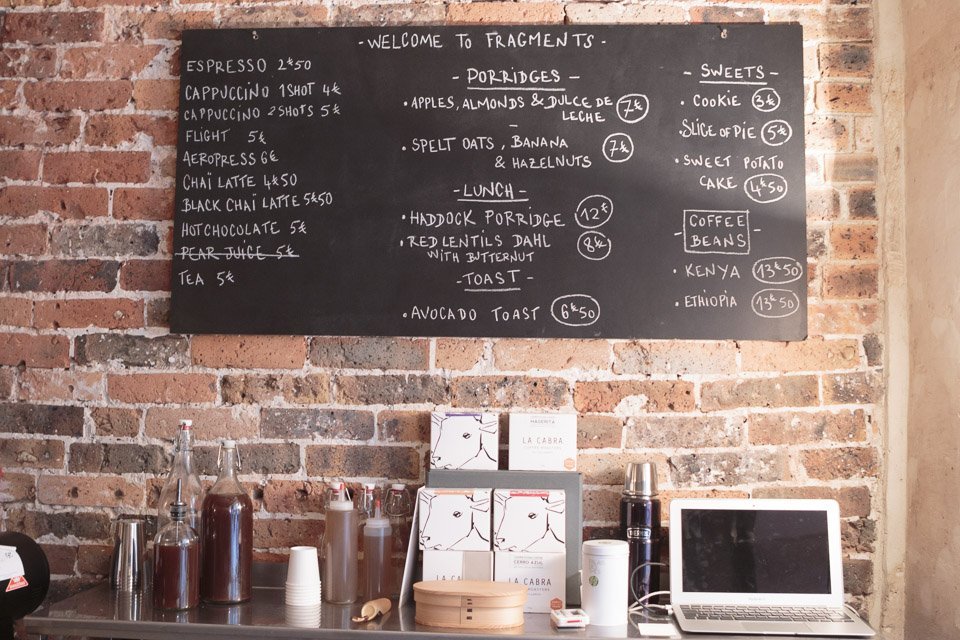 -WELCOME TO FRAGMENTS-
ESPRESSO 2€50
CAPPUCCINO 1SHOT 4€
CAPPUCCINO 2SHOTS 5€
FLIGHT 5€
AEROPRESS 6€
CHAÏ LATTE 4€50
BLACK CHAÏ LATTE 5€50
HOT CHOCOLATE 5€
PEAR JUICE 5€
TEA 5€
- PORRIDGES -
• APPLES, ALMONDS & DULCE DE 7€
LECHE
-
• SPELT OATS, BANANA 7€
& HAZELNUTS
- LUNCH -
• HADDOCK PORRIDGE 12€
• RED LENTILS DAHL 8€
WITH BUTTERNUT
- TOAST -
• AVOCADO TOAST 6€50
- SWEETS -
• COOKIE 3€
• SLICE OF PIE 5€
• SWEET POTATO
CAKE 4€50
- COFFEE
BEANS -
• KENYA 13€50
• ETHIOPIA 13€50
LA CABRA
COFFEE ROASTERS
CERRO AZUL
LA CABRA